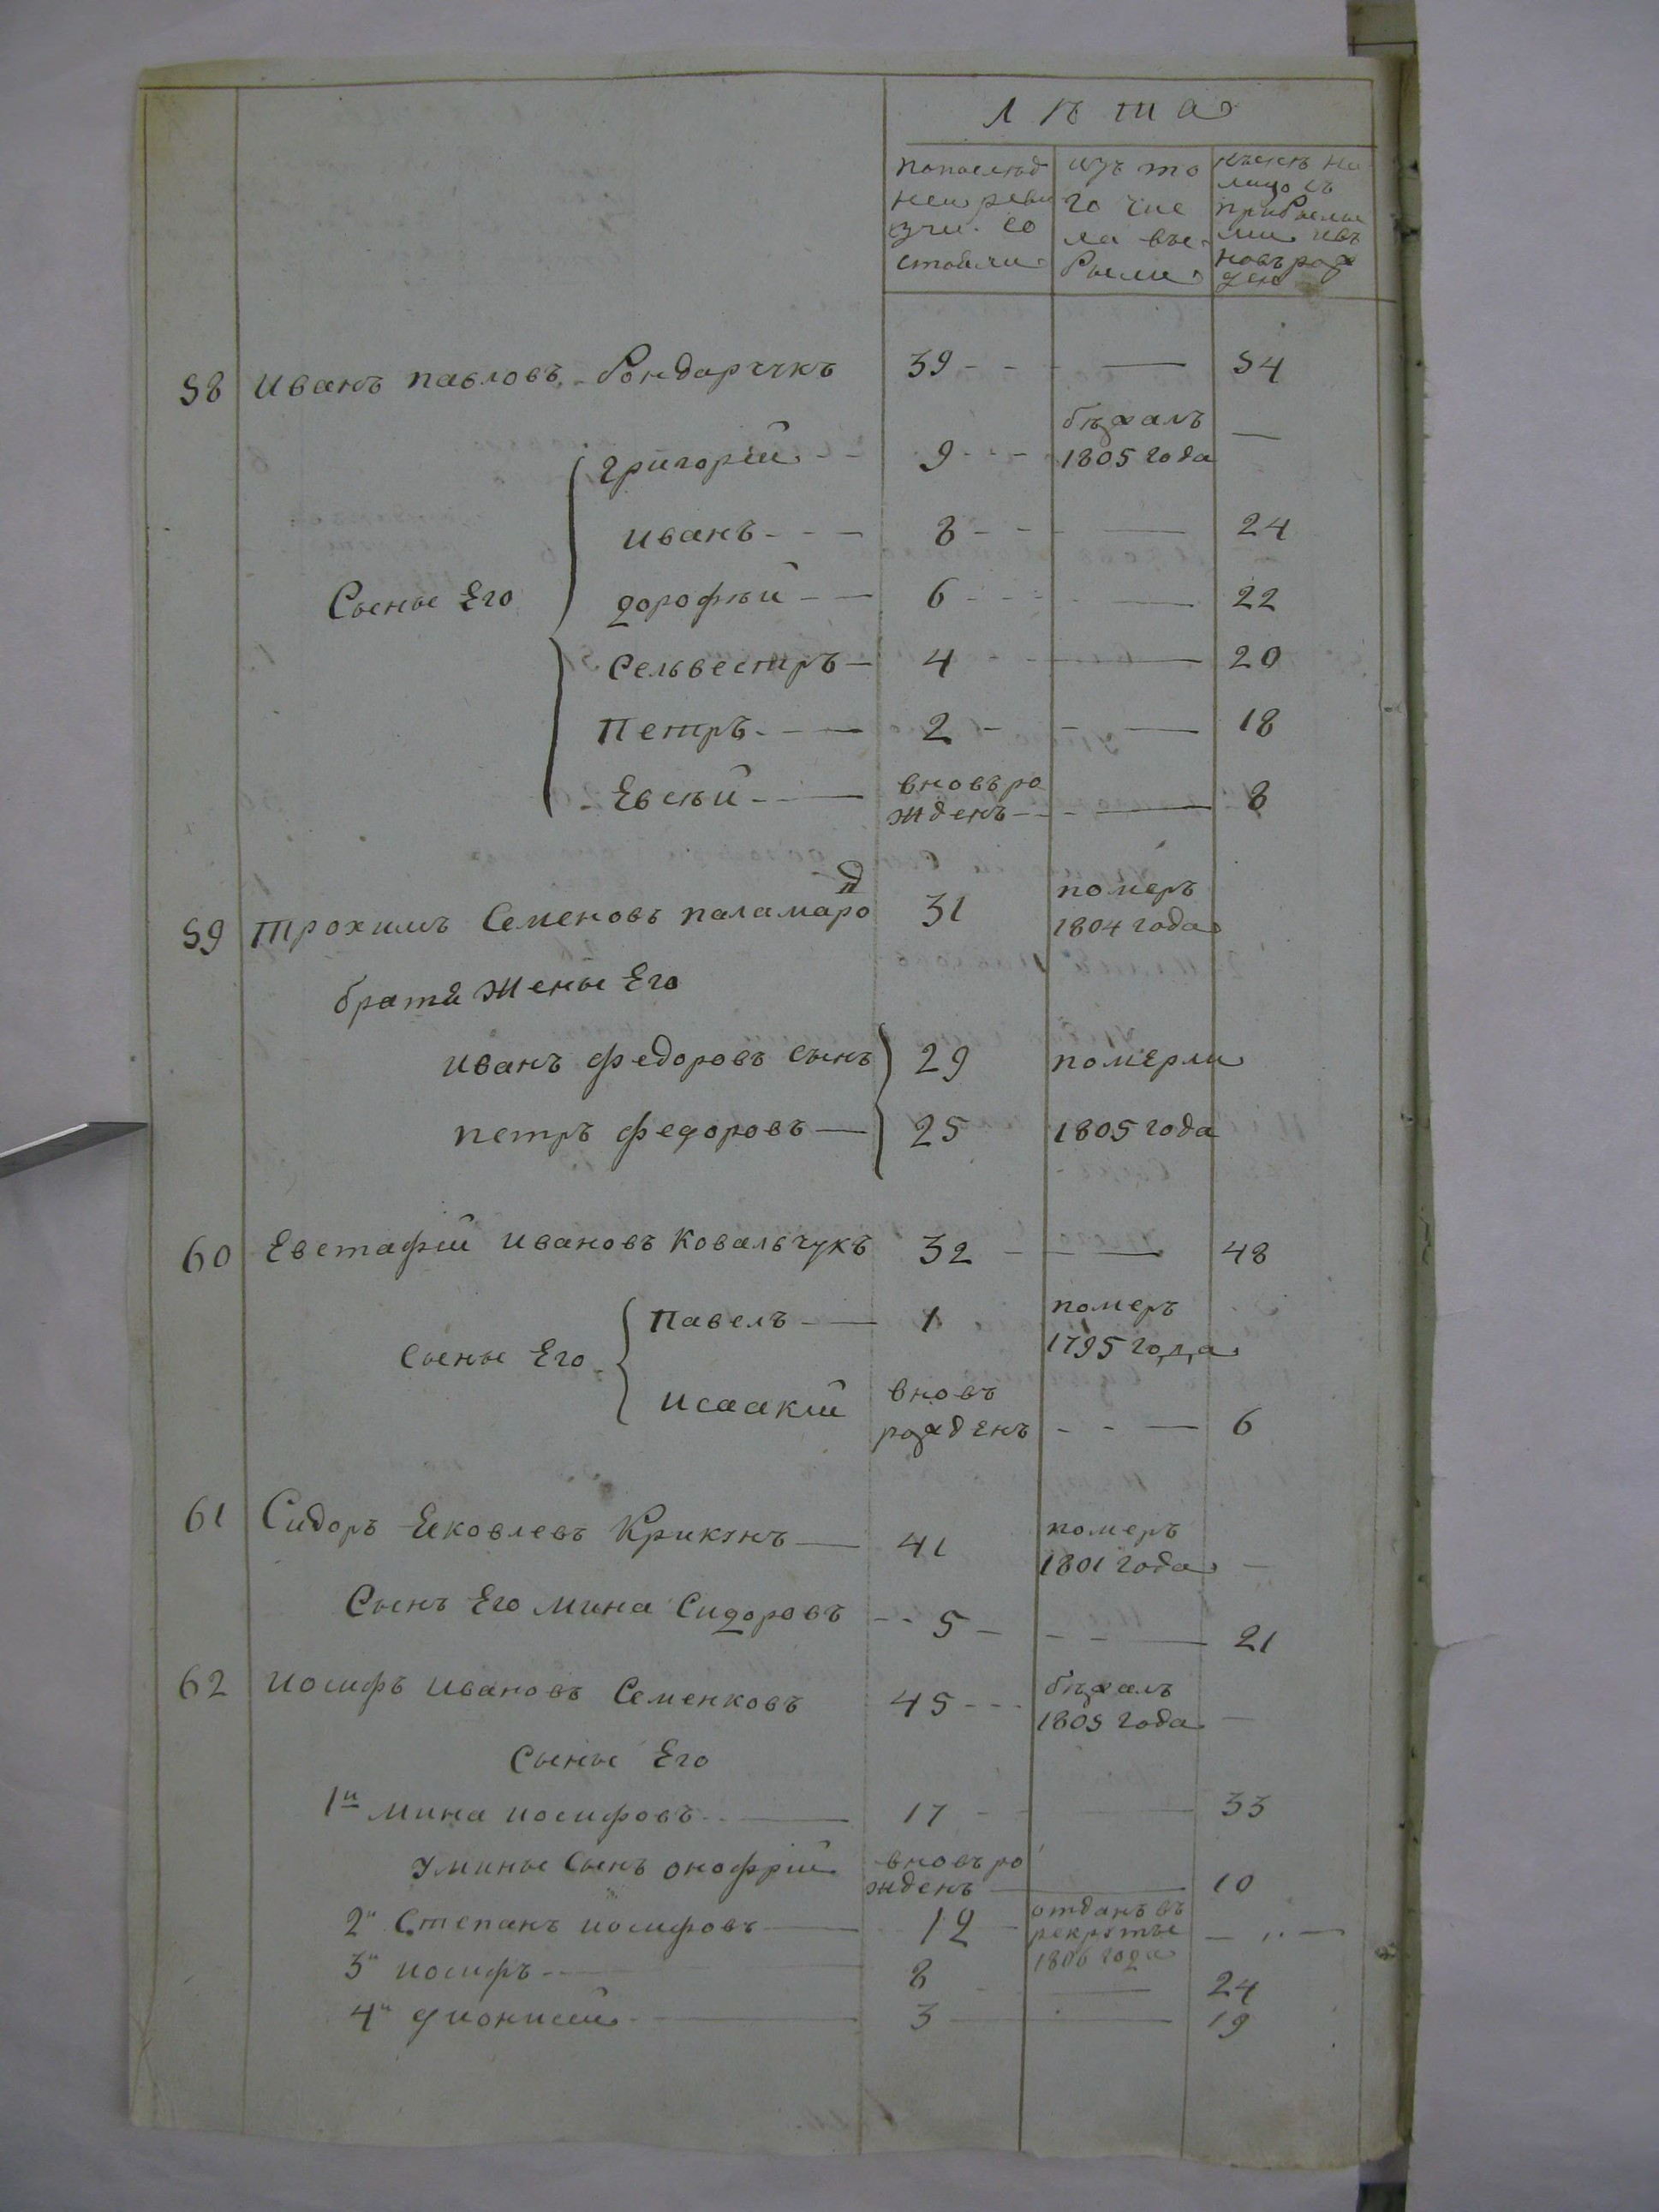 лѣта
попослѣд изъ то нынѣ на
неи реви го чис лицо съ
зіи со ла вы- прибылы
стояли были ми ивъ
новь рож
ден
58 Иванъ павловъ Бондарчукъ 39 — 54
Григорій 9 бѣжалъ 1805 года —
иванъ 8 — 24
Сыны Его дорофѣй 6 — 22
Сельвестръ 4 — 20
Петръ 2 — 18
Евсѣй вновьро жденъ — 8
59 Трохимъ Семеновъ паламаро 31 померъ 1804 года
братя Жены Его
иванъ федоровъ сынъ 29 померли
петръ федоровъ 25 1805 года
60 Евстафій ивановъ Ковальчукъ 32 — 48
Павелъ 1 померъ 1795 года
сыны Его
исаакій вновь рожденъ — 6
61 Сидоръ Яковлевъ 41 померъ 1801 года —
Сынъ Его мина Сидоровъ 5 — 21
62 иосифъ ивановъ Семенковъ 45 бѣжалъ 1805 года —
Сыны Его
1й мина иосифовъ 17 — 33
Умины Сынъ онофрій вновьро жденъ — 10
2й Степанъ иосифовъ 12 отданъ въ рекруты 1806 года —
3й иосифъ 8 — 24
4й дионисий 3 — 19